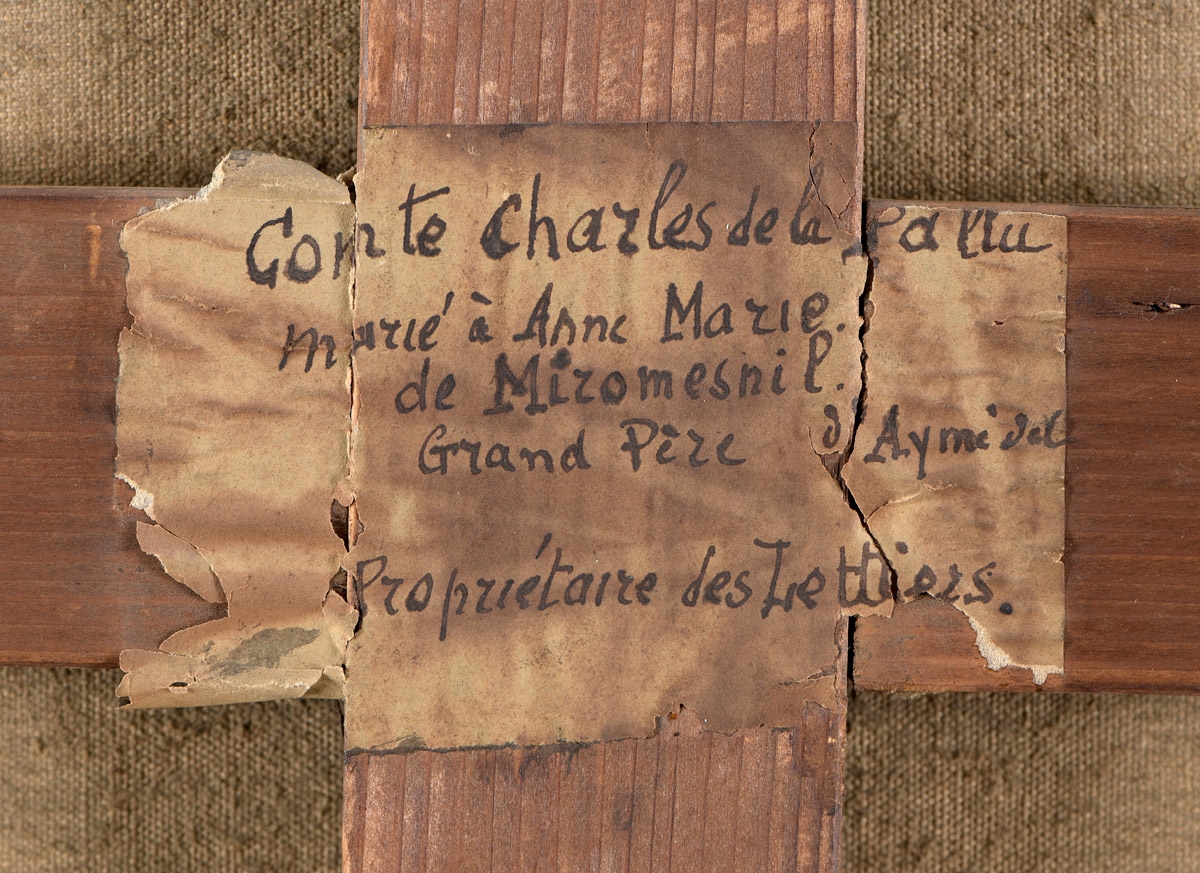 Comte Charles de la Pallu
marié à Anne Marie.
de Miromesnil.
Grand Père d'Aymé del
Propriétaire des Lettiers.